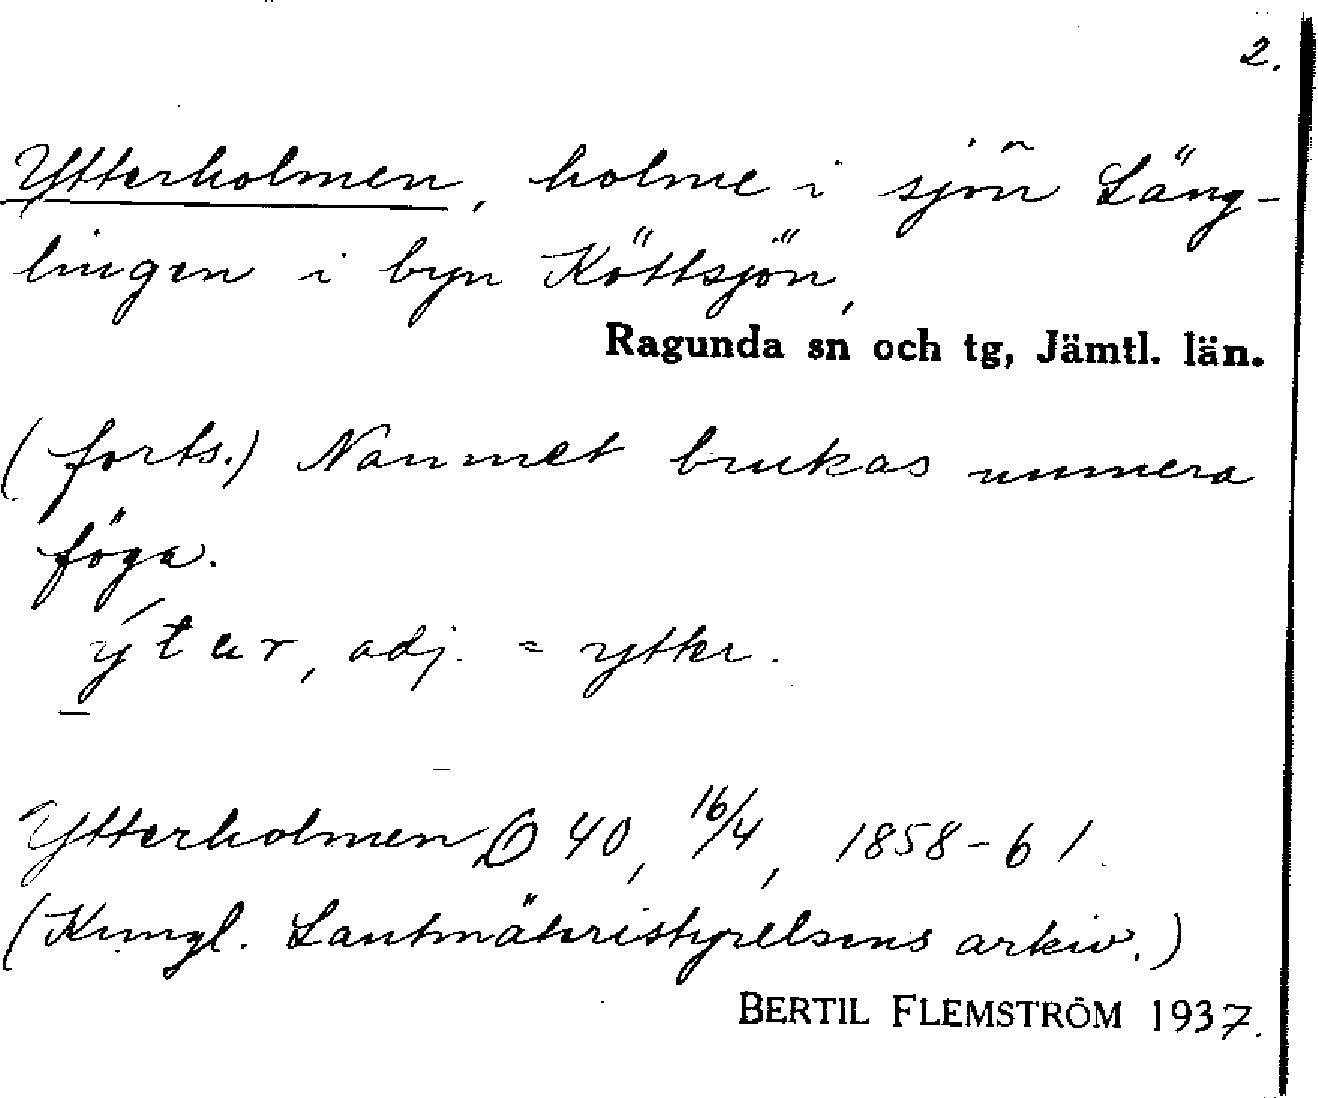 2.
Ytterholmen, holme i sjön Läng-
lingen i byn Köttsjön,
Ragunda sn och tg, Jämtl. län.
(forts.) Namnet brukas numera
föga.
ýtur, adj. = ytter.
Ytterholmen D 40, 16/4, 1858-61.
(Kungl. Lantmäteristyrelsens arkiv.)
BERTIL FLEMSTRÖM 1937.